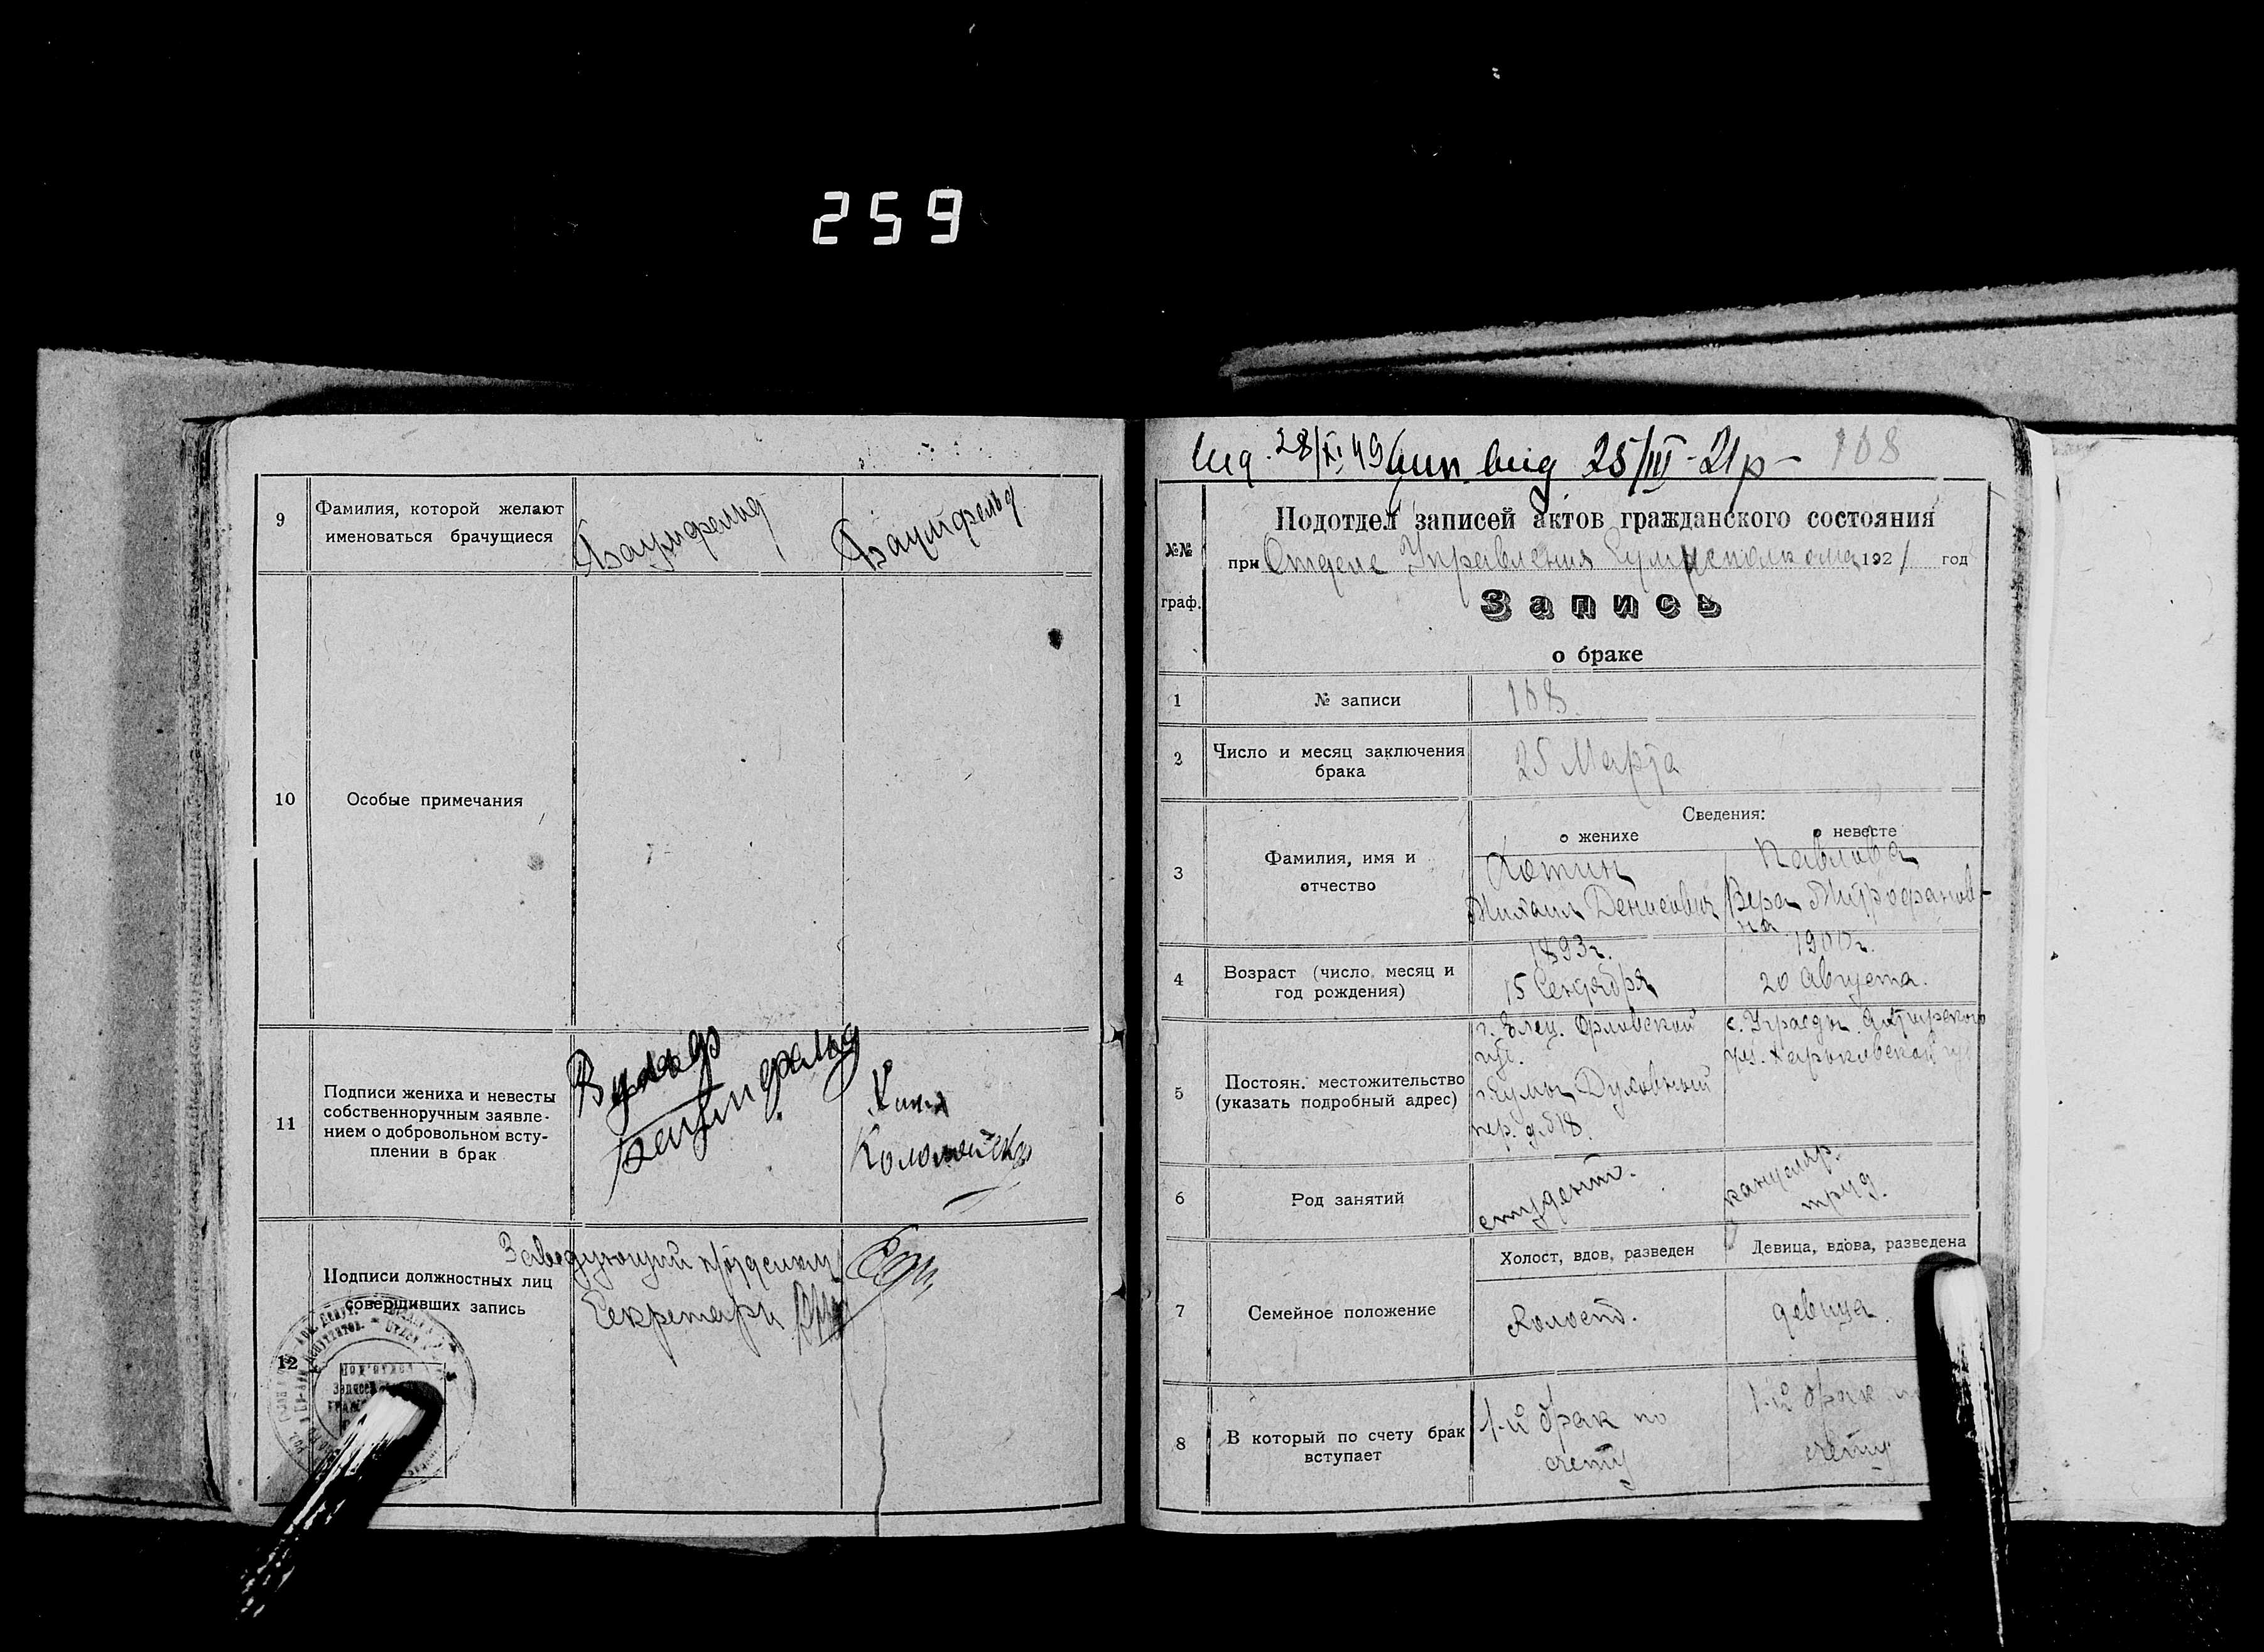 259
9
Фамилия, которой желают
именоваться брачущиеся
Баумфельд
Баумфельд
10
Особые примечания
11
Подписи жениха и невесты
собственноручным заявле-
нием о добровольном всту-
плении в брак
Вульф
Баумфельд
Хана
Коломейская
12
Подписи должностных лиц
совершивших запись
Заведующий п/отделом
Секретарь
вид. 28/XI 49 вид 25/III-21р-
108
№№
граф.
Подотдел записей актов гражданского состояния
при Отделе Управления Сумисполкома 1921 год
Запись
о браке
1
№ записи
108.
2
Число и месяц заключения
брака
25 Марта
Сведения:
о женихе
о невесте
3
Фамилия, имя и
отчество
Хотин
Михаил Денисович
Павлова
Вера Митрофанов-
на
4
Возраст (число, месяц и
год рождения)
1893г.
15 Сентября
1900г.
20 Августа.
5
Постоян. местожительство
(указать подробный адрес)
г. Елец. Орловской
губ.
г. Сумы Духовный
пер. д. № 18.
с. Угроеды. Ахтырского
уез. Харьковской гу
6
Род занятий
студент.
канцеляр.
труд.
7
Семейное положение
Холост, вдов, разведен
Девица, вдова, разведена
Холост.
девица.
8
В который по счету брак
вступает
1-й брак по
счету
1-й брак
счету